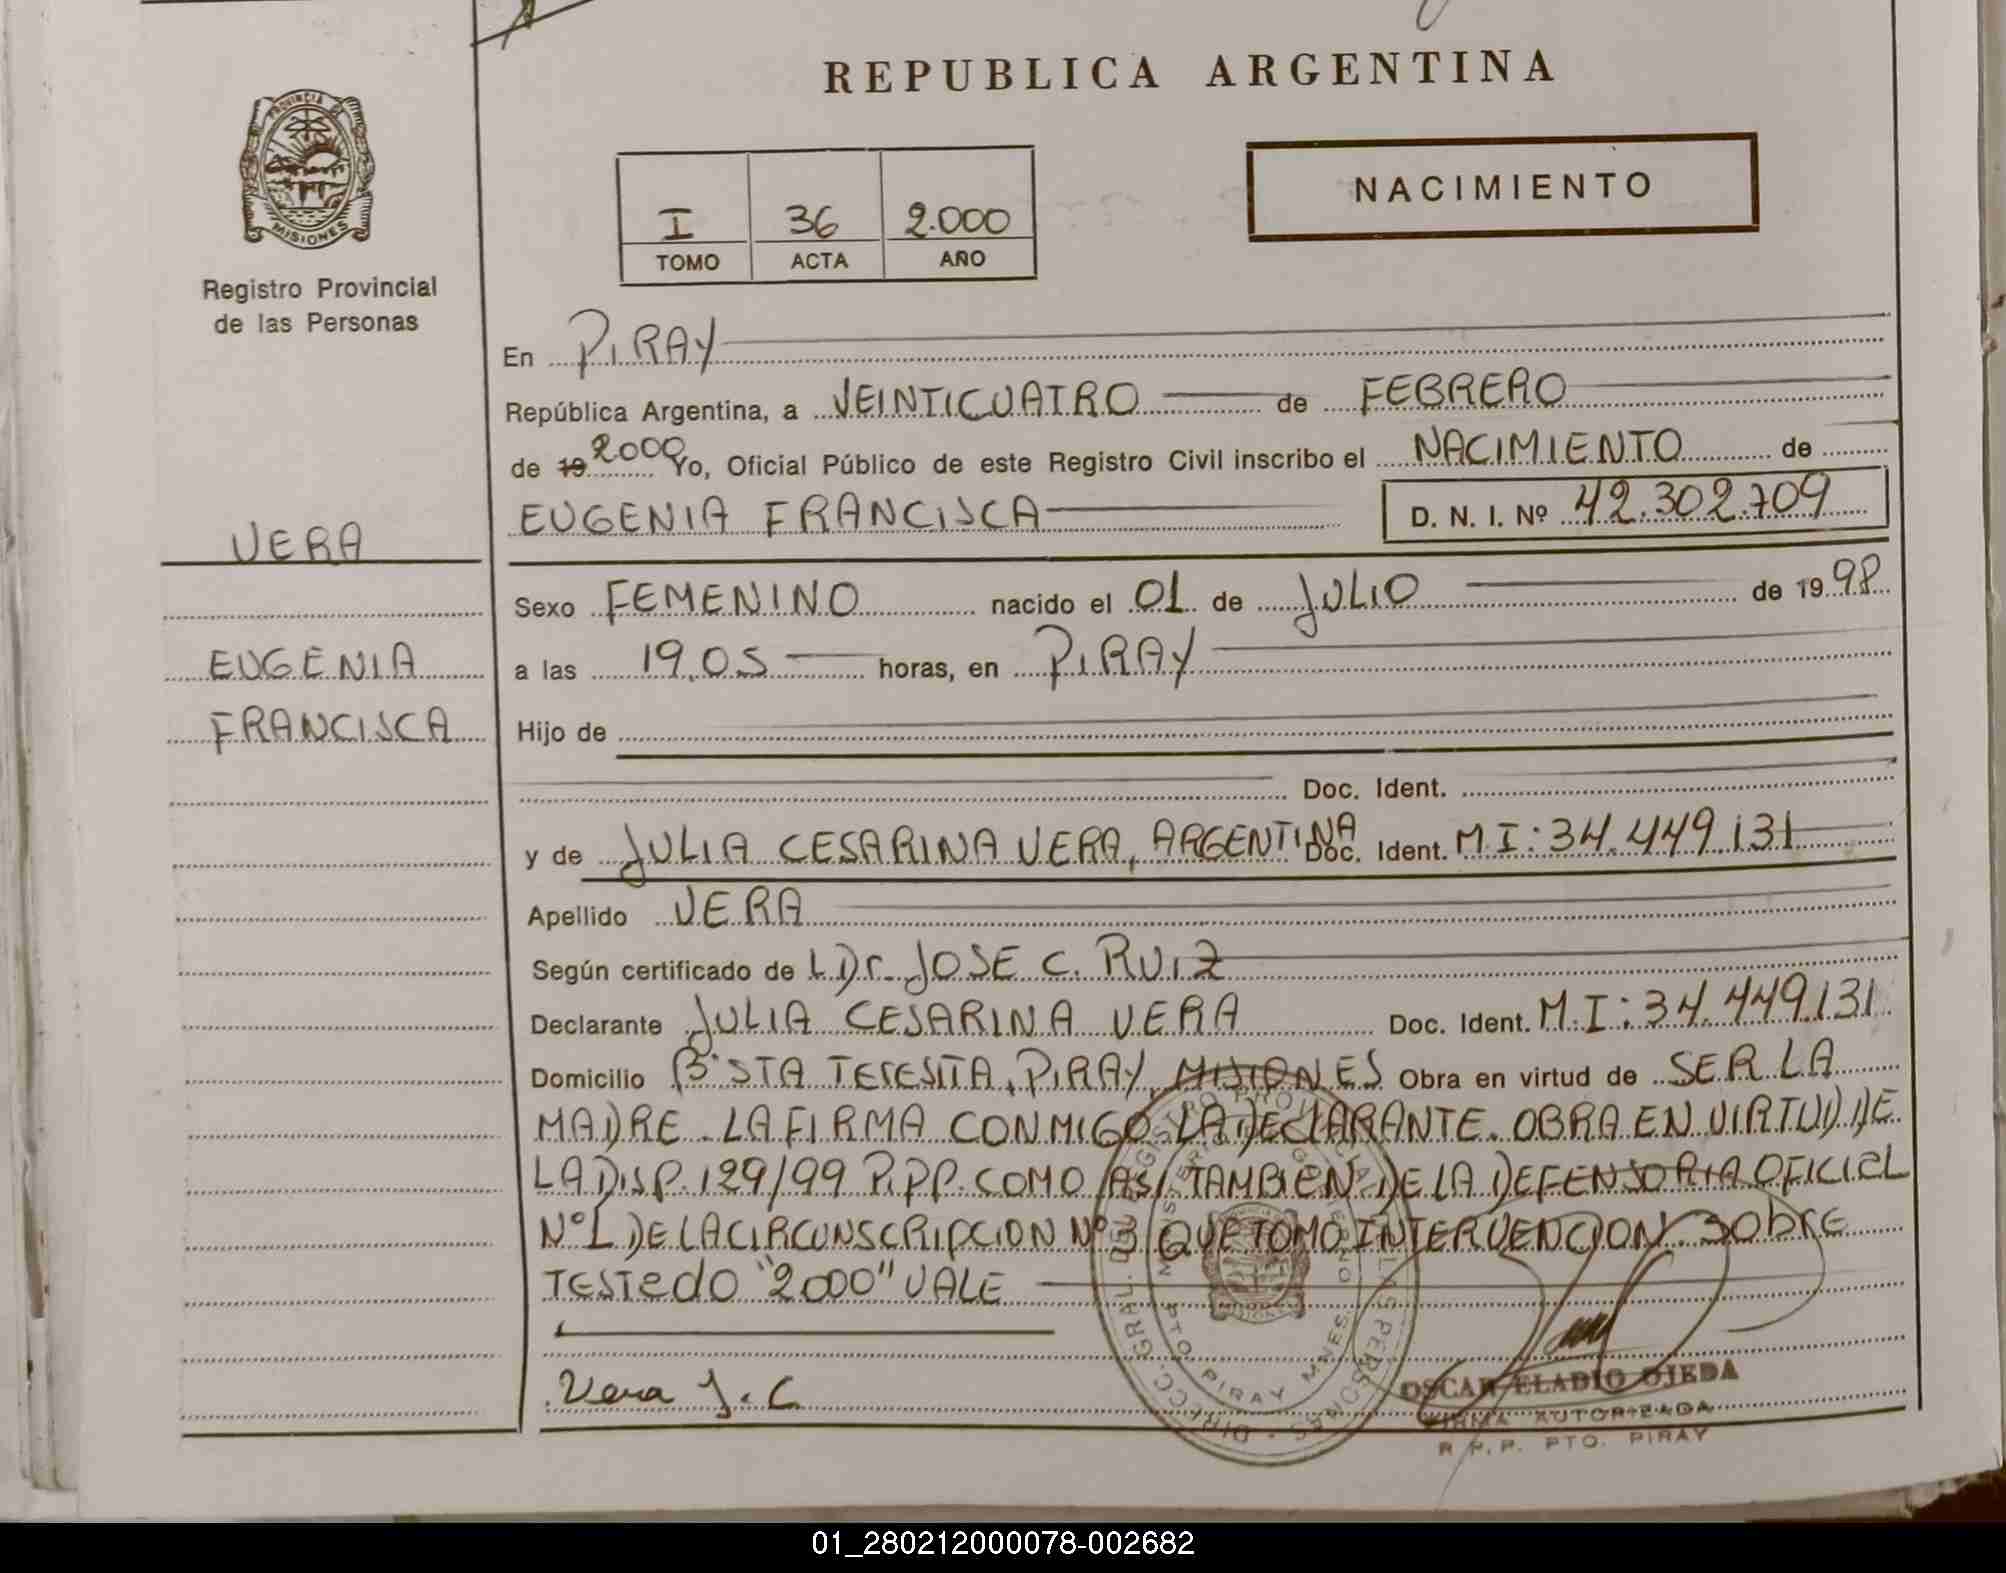 REPUBLICA ARGENTINA
PROVINCIA DE
MISIONES
Registro Provincial
de las Personas
NACIMIENTO
I 36 2.000
TOMO ACTA AÑO
En PIRAY
República Argentina, a VEINTICUATRO de FEBRERO
de 19 2000 Yo, Oficial Público de este Registro Civil inscribo el NACIMIENTO de
EUGENIA FRANCISCA D. N. I. Nº 42.302.709
VERA
EUGENIA
FRANCISCA
Sexo FEMENINO nacido el 01 de JULIO de 1998
a las 19,05 horas, en PIRAY
Hijo de
Doc. Ident.
y de JULIA CESARINA VERA, ARGENTINA Doc. Ident. M I: 34.449.131
Apellido VERA
Según certificado de L Dr. JOSE C. RUIZ
Declarante JULIA CESARINA VERA Doc. Ident. M.I: 34.449.131
Domicilio Bº STA TERESITA, PIRAY, MISIONES Obra en virtud de SER LA
MADRE. LA FIRMA CONMIGO LA DECLARANTE. OBRA EN VIRTUD DE
LA DISP. 129/99 P.PP. COMO ASI TAMBIEN DE LA DEFENSORIA OFICIAL
Nº 1 DE LA CIRCUNSCRIPCION Nº 3 QUE TOMO INTERVENCION. SObRE
TESTedO "2000" VALE
Vera J. C
OSCAR ELADIO OJEDA
FIRMA AUTORIZADA
R.P.P. PTO. PIRAY
01_280212000078-002682